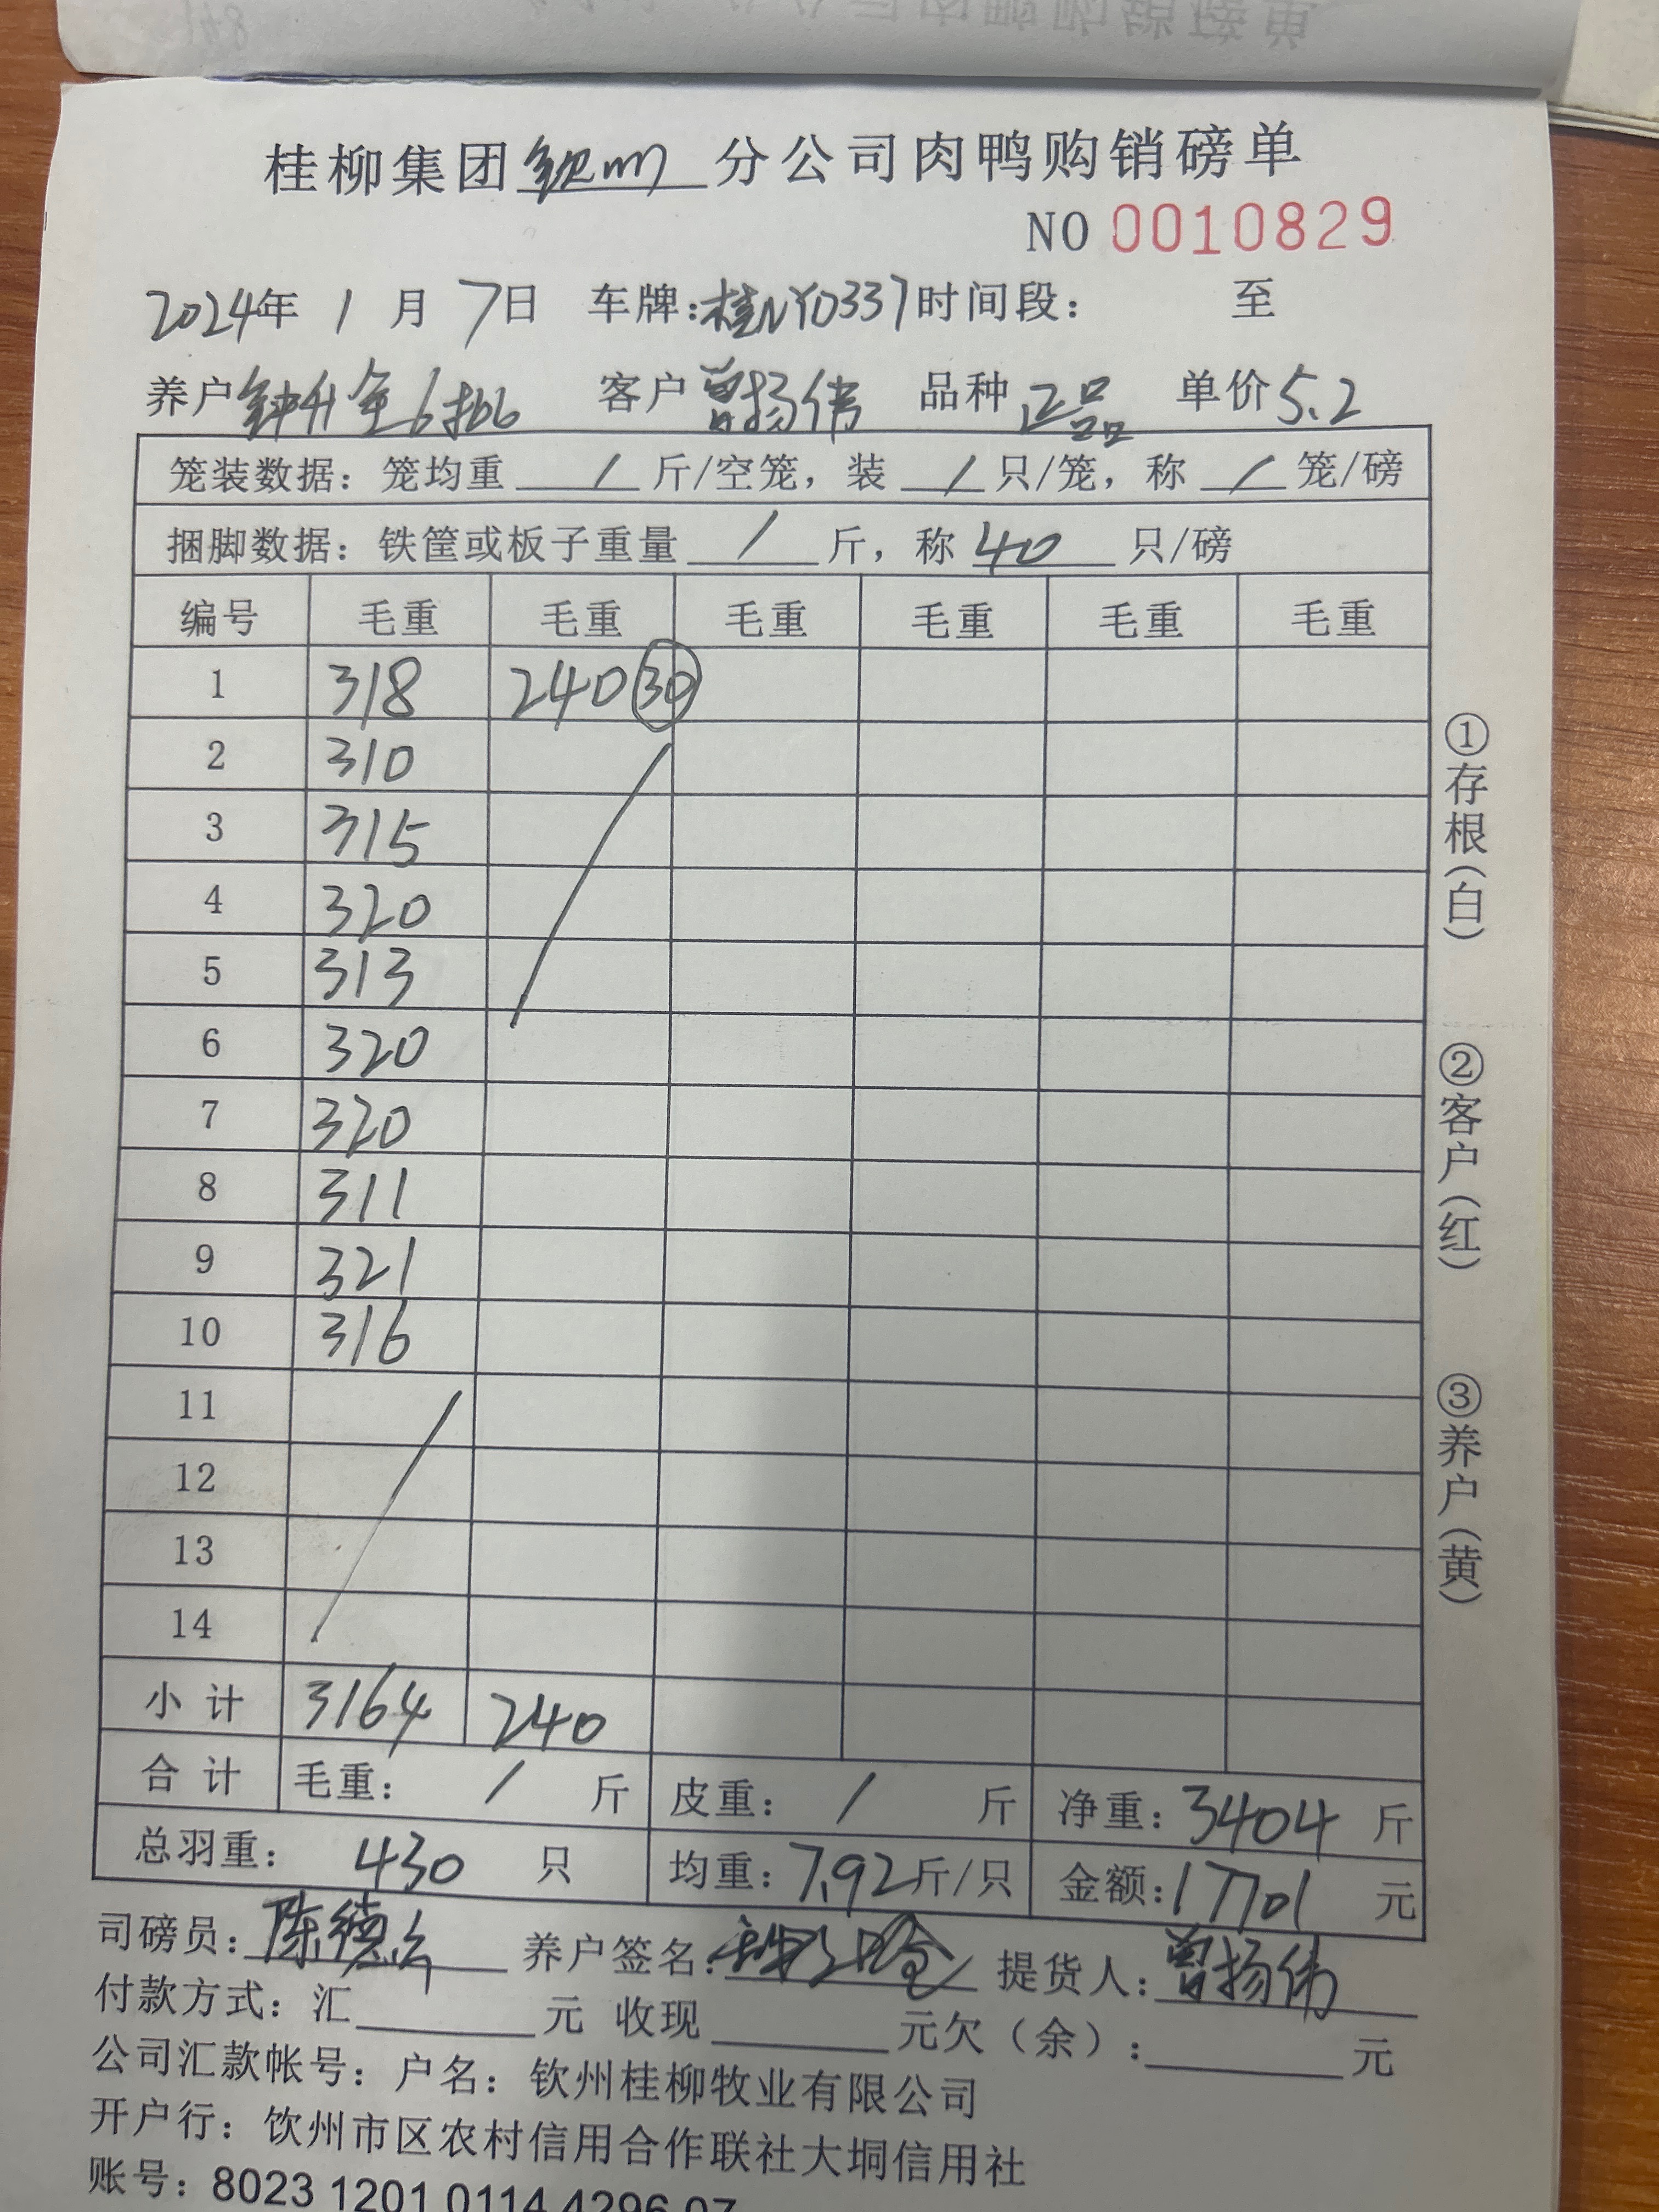 桂柳集团 钦州 分公司肉鸭购销磅单
NO 0010829
2024年 1 月 7日 车牌:桂NY0337 时间段: 至
养户 钟升金6批 客户 曾扬伟 品种 正品 单价 5.2
笼装数据: 笼均重 / 斤/空笼, 装 / 只/笼, 称 / 笼/磅
捆脚数据: 铁筐或板子重量 / 斤, 称 40 只/磅
编号 毛重 毛重 毛重 毛重 毛重 毛重
1 318 240 30
2 310
3 315
4 320
5 313
6 320
7 320
8 311
9 321
10 316
11
12
13
14
小 计 3164 240
合 计 毛重: / 斤 皮重: / 斤 净重: 3404 斤
总羽重: 430 只 均重: 7.92 斤/只 金额: 17701 元
司磅员: 陈德 养户签名: 提货人: 曾扬伟
付款方式: 汇 元 收现 元欠(余): 元
公司汇款帐号: 户名: 钦州桂柳牧业有限公司
开户行: 饮州市区农村信用合作联社大垌信用社
账号: 8023 1201 0114 4296 07
①存根(白)
②客户(红)
③养户(黄)